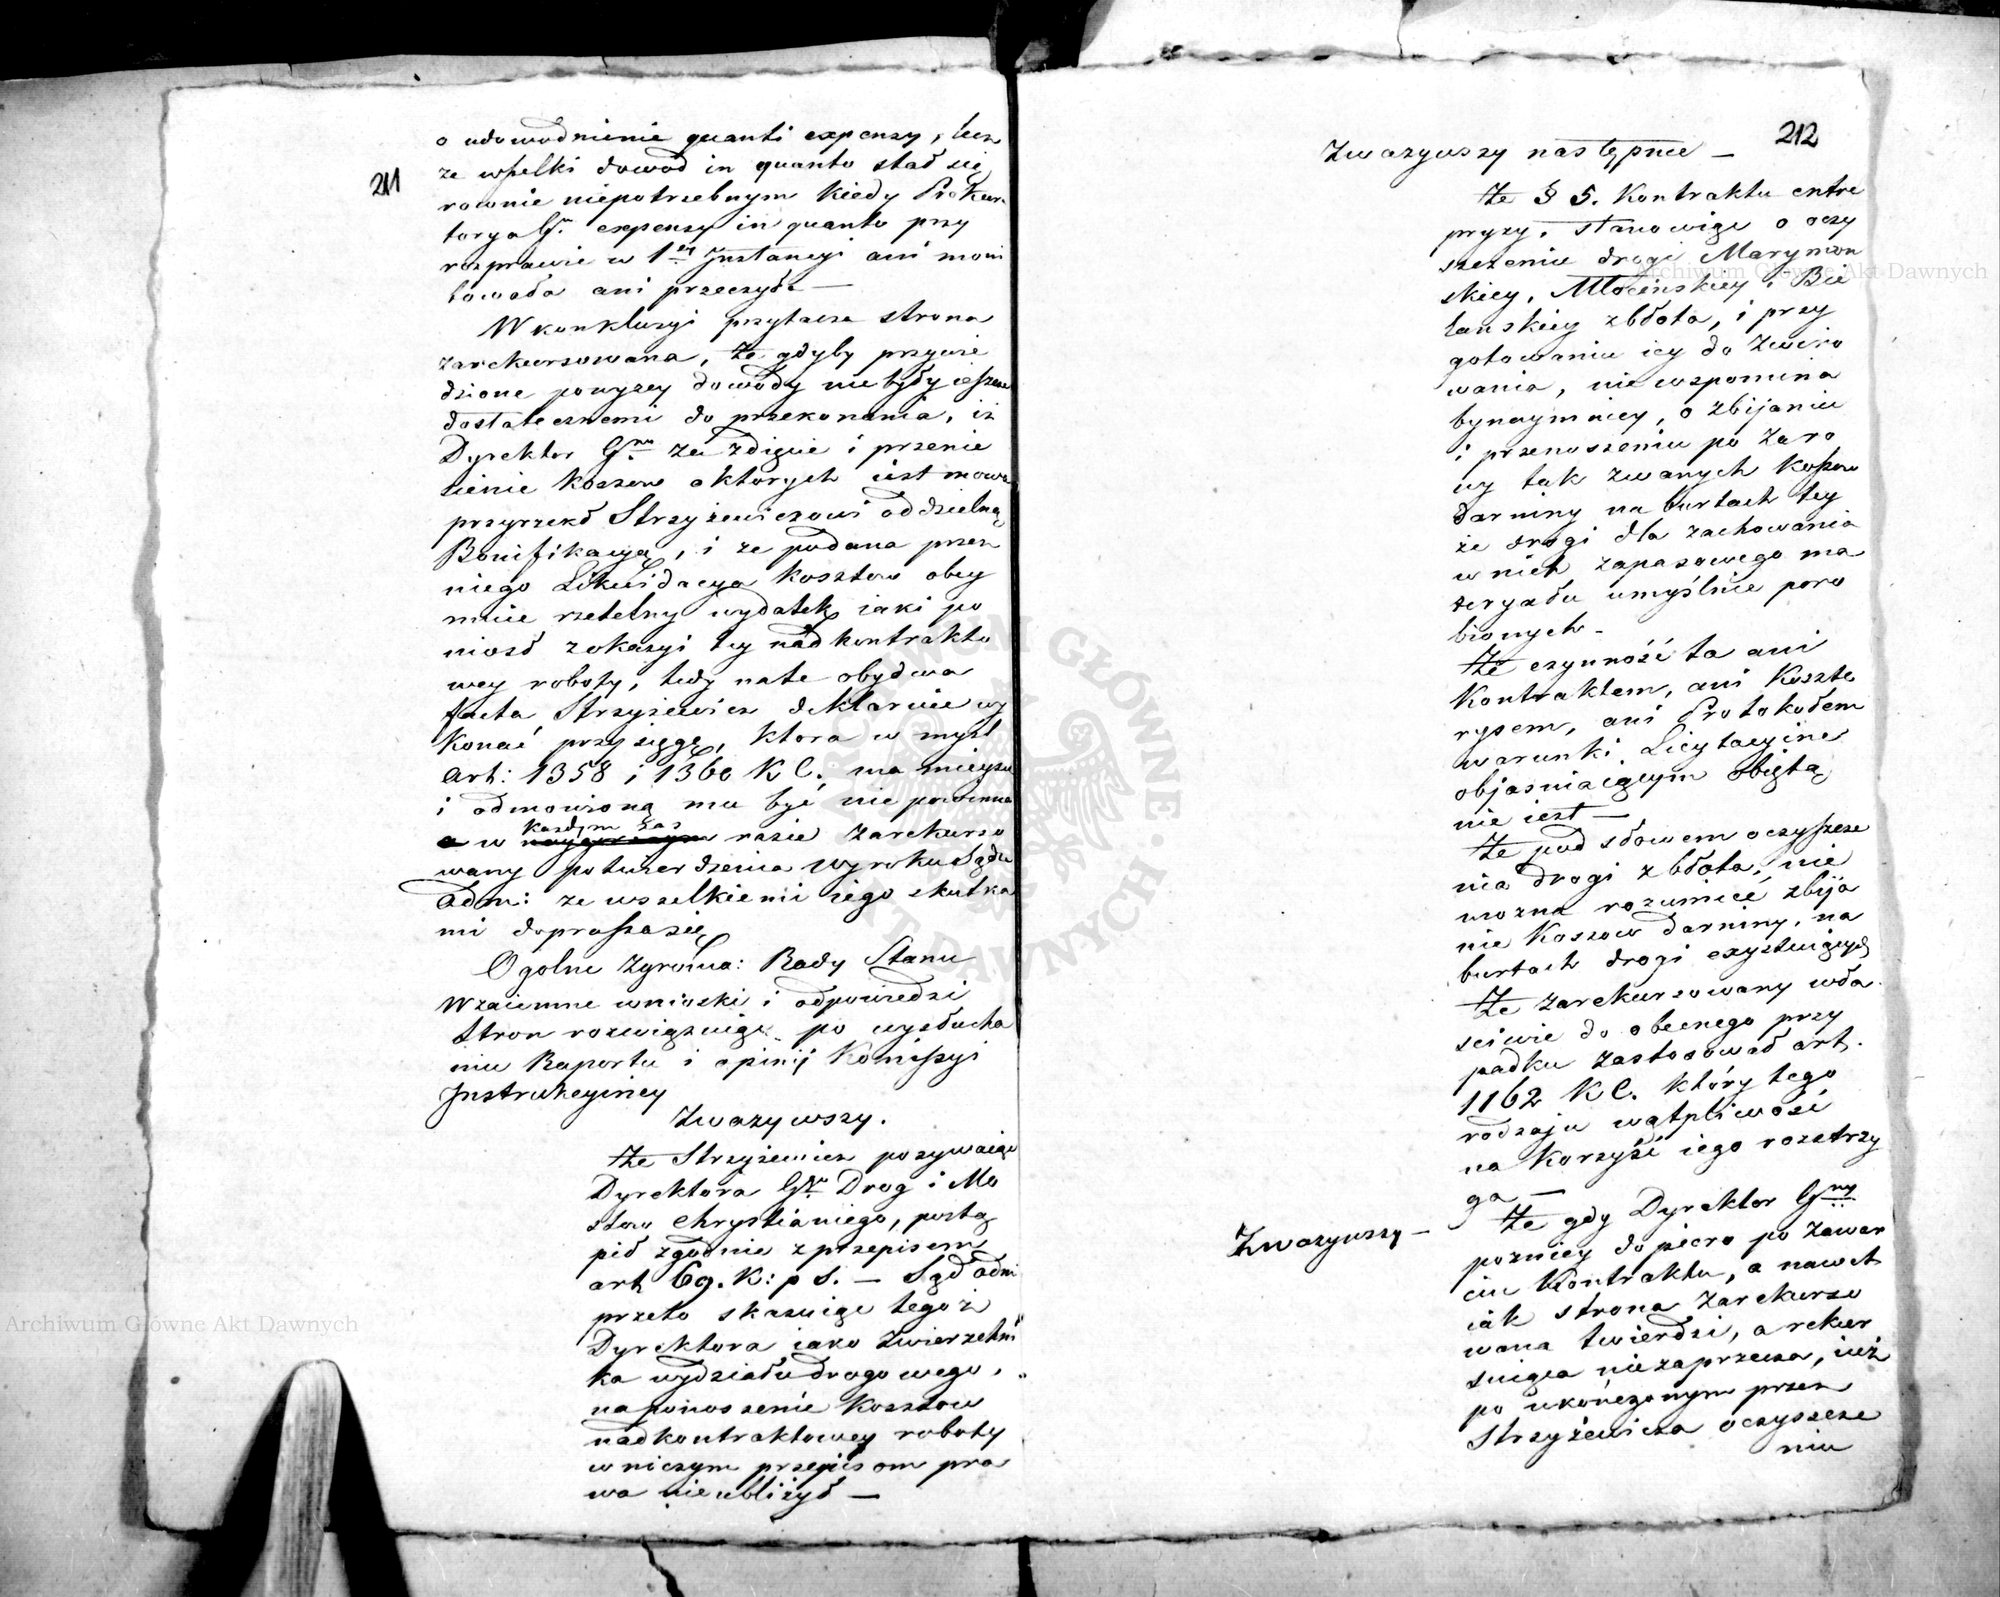 211
o udowodnienie quanti expensy, lecz
ze wszelki dowod in quanto stał się
rownie niepotrzebnym kiedy Prokura
torya Gła expensy in quanto przy
rozprawie w 1éy Jnstancyi ani moni
towała ani przeczyła —
W konkluzyi przytacza strona
zarekursowana, że gdyby przywie
dzione powyzey dowody nie były ieszcze
dostatecznemi do przekonania, iz
Dyrektor Gnn za zdięcie i przenie
sienie koszow o ktorych iest mowa
przyrzekł Strzyżewiczowi oddzielną
Bonifikacyą, i ze podana przez
niego Likwidacya kosztow obey
muie rzetelny wydatek iaki po
niosł z okazyi tey nadkontrakto
wey roboty, tedy na te obydwa
facta Strzyżewicz deklaruie wy
konać przysięgę, ktora w myśl
Art: 1358 i 1360 K C. ma mieysce
i odmowioną mu być nie powinna
w kazdym zas razie zarekurso
wany potwierdzenia wyroku Sądu
Adm: ze wszelkiemi iego skutka
mi doprasza się
Ogolne Zgroma: Rady Stanu
Wzaiemne wnioski i odpowiedzi
Stron rozwiązuiąc po wysłucha
niu Raportu i opinij Komissyi
Jnstrukcyiney
Zwazywszy.
Że Strzyżewicz pozywaiąc
Dyrektora Gła Drog i Mo
stow Chrystianiego, postą
pił zgodnie z przepisem
art 69. K: p S. — Sąd Adm
przeto skazuiąc tegoż
Dyrektora iako Zwierzchni
ka wydziału drogowego,
na ponoszenie kosztow
nadkontraktowey roboty
w niczym przepisom pra
wa nie ubliżył —
212
Zwazywszy następnie —
Że § 5. Kontraktu entre
pryzy, stanowiąc o oczy
szczeniu drogi Marymon
skiey, Młocinskiey i Bie
lanskiey z błota, i przy
gotowaniu iey do Zwiro
wania, nie wspomina
bynaymniey, o zbijaniu
i przenoszeniu po za ro
wy tak zwanych koszow
darniny na burtach tey
że drogi dla zachowania
w nich zapasowego ma
teryału umyślnie poro
bionych —
Że czynność ta ani
Kontraktem, ani Koszto
rysem, ani Protokołem
warunki Licytacyine
objasniaiącym objętą
nie iest —
Że pod słowem oczyszcze
nia drogi z błota, nie
mozna rozumieć zbija
nie Koszow darniny, na
burtach drogi exystuiących
Że zarekursowany wła
sciwie do obecnego przy
padku zastosował art.
1162 K C. który tego
rodzaju wątpliwość
na korzyść iego rozstrzy
ga —
Zwazywszy —
Że gdy Dyrektor Gny
poźniey dopiero po zawar
ciu Kontraktu, a nawet
iak strona zarekurso
wana twierdzi, a rekur
suiąca nie zaprzecza, iuż
po ukończonym przez
Strzyżewicza oczyszcze
niu
Archiwum Główne Akt Dawnych
Archiwum Główne Akt Dawnych